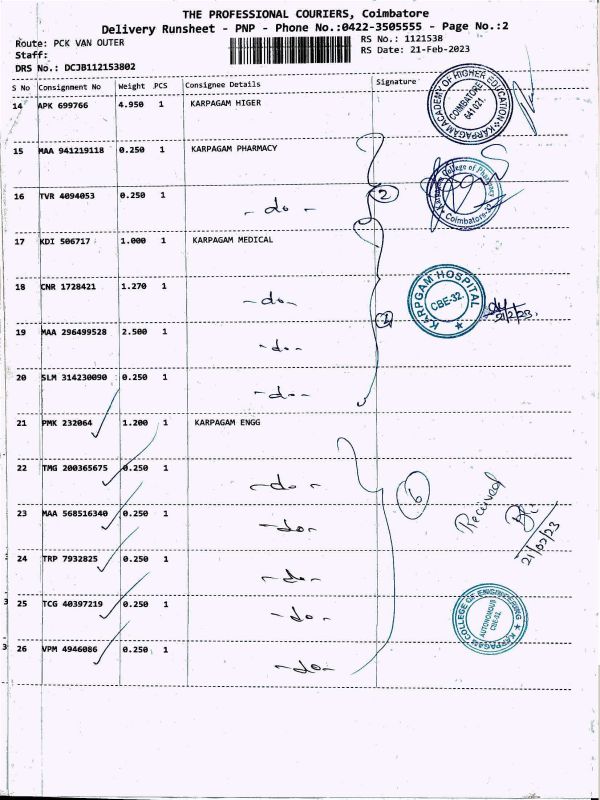 THE PROFESSIONAL COURIERS, Coimbatore
Delivery Runsheet - PNP - Phone No.:0422-3505555 - Page No.:2
Route: PCK VAN OUTER
RS No.: 1121538
Staff:
RS Date: 21-Feb-2023
DRS No.: DCJB112153802
S No Consignment No Weight PCS Consignee Details Signature
14 APK 699766 4.950 1 KARPAGAM HIGER
KARPAGAM ACADEMY OF HIGHER EDUCATION COIMBATORE 641021.
15 MAA 941219118 0.250 1 KARPAGAM PHARMACY
16 TVR 4094053 0.250 1 -do- 2
College of Pharmacy Coimbatore-32
17 KDI 506717 1.000 1 KARPAGAM MEDICAL
18 CNR 1728421 1.270 1 -do-
KARPGAM HOSPITAL CBE-32
21/2/23.
19 MAA 296499528 2.500 1 -do-
20 SLM 314230090 0.250 1 -do-
21 PMK 232064 1.200 1 KARPAGAM ENGG
22 TMG 200365675 0.250 1 -do- 6
Received
23 MAA 568516340 0.250 1 -do-
21/02/23
24 TRP 7932825 0.250 1 -do-
25 TCG 40397219 0.250 1 -do-
KARPAGAM COLLEGE OF ENGINEERING AUTONOMOUS CBE-32
26 VPM 4946086 0.250 1 -do-